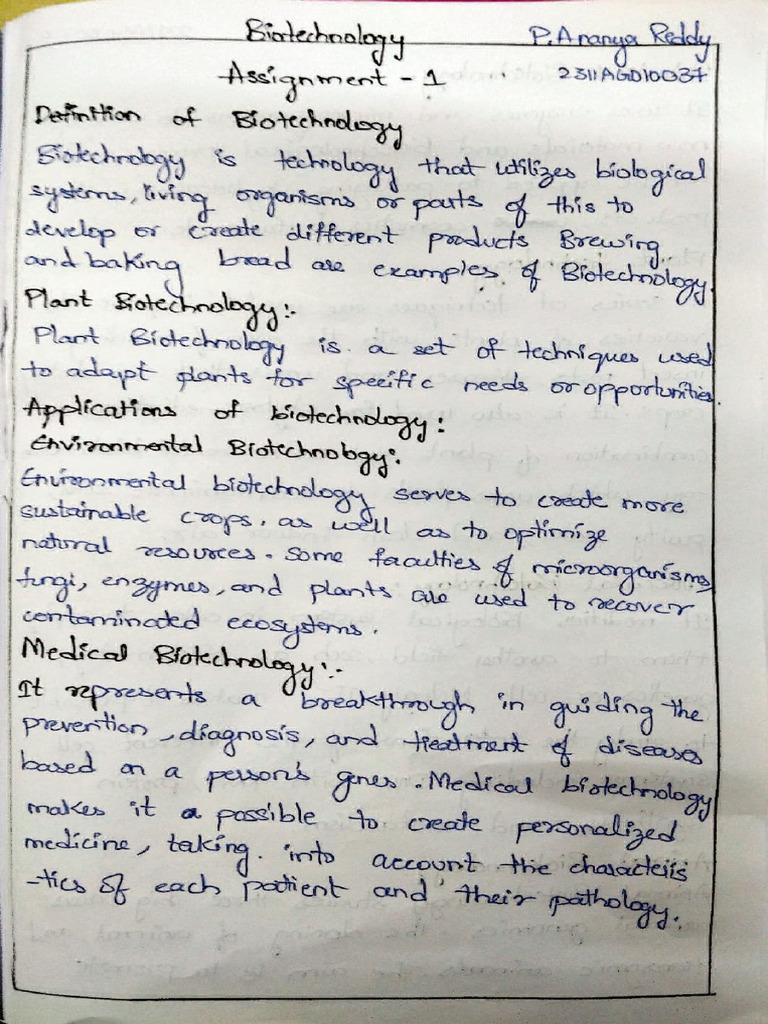 Biotechnology
P. Ananya Reddy
Assignment - 1
2311AG010037
Definition of Biotechnology
Biotechnology is technology that utilizes biological
systems, living organisms or parts of this to
develop or create different products Brewing
and baking bread are examples of Biotechnology.
Plant Biotechnology:-
Plant Biotechnology is a set of techniques used
to adapt plants for specific needs or opportunities.
Applications of biotechnology:
Environmental Biotechnology:
Environmental biotechnology serves to create more
sustainable crops, as well as to optimize
natural resources. Some faculties of microorganisms,
fungi, enzymes, and plants are used to recover
contaminated ecosystems.
Medical Biotechnology:-
It represents a breakthrough in guiding the
prevention, diagnosis, and treatment of diseases
based on a person's genes. Medical biotechnology
makes it a possible to create personalized
medicine, taking into account the characteris
-tics of each patient and their pathology.